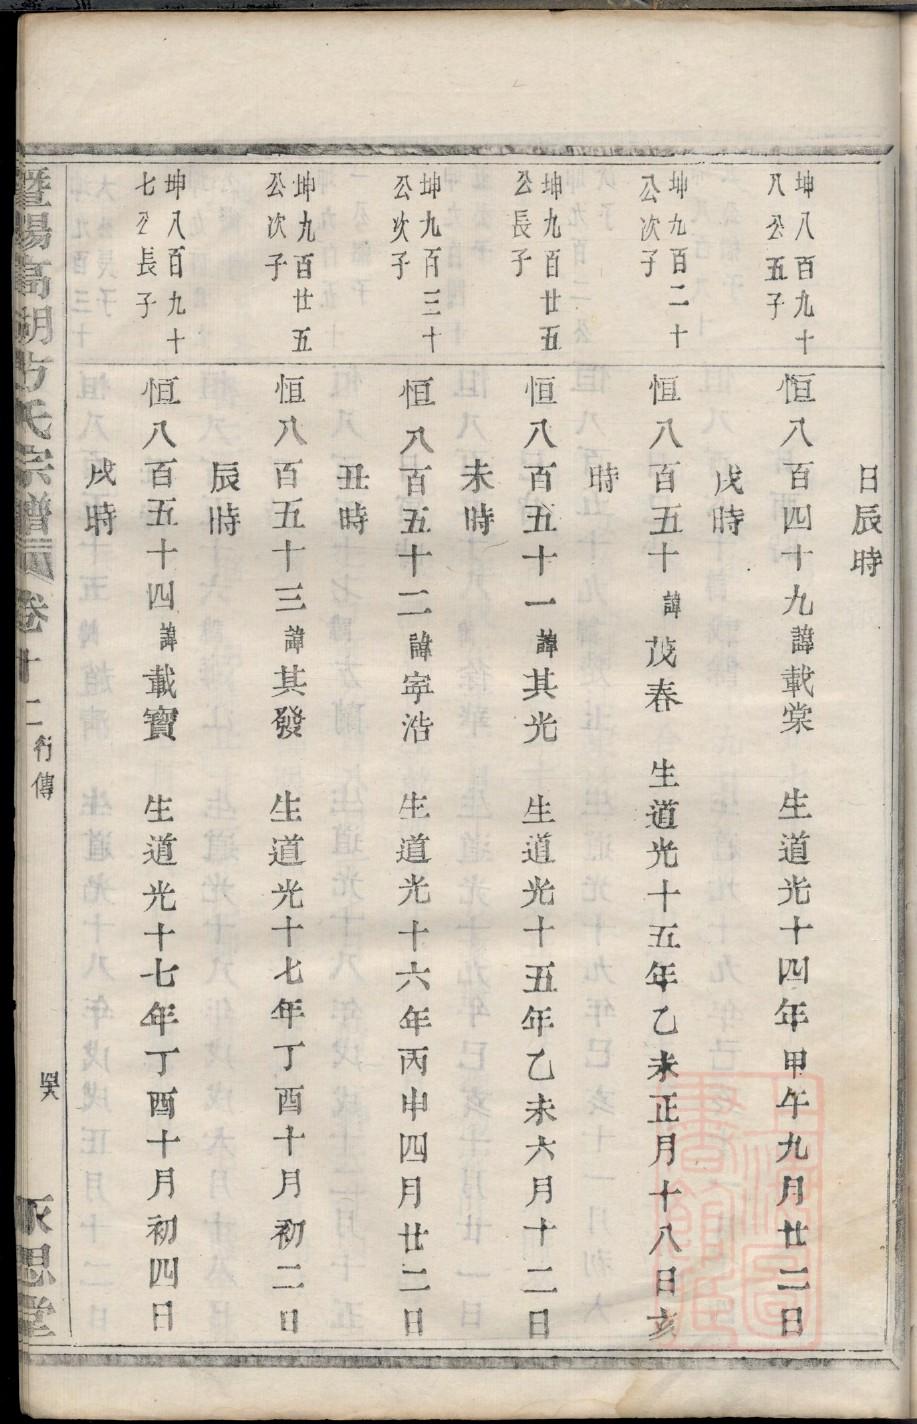 日辰時
坤八百九十
八公五子
恒八百四十九諱載棠 生道光十四年甲午九月廿二日
戌時
坤九百二十
公次子
恒八百五十諱茂春 生道光十五年乙未正月十八日亥
時
坤九百廿五
公長子
恒八百五十一諱其光 生道光十五年乙未六月十二日
未時
坤九百三十
公次子
恒八百五十二諱寧浩 生道光十六年丙申四月廿二日
丑時
坤九百廿五
公次子
恒八百五十三諱其發 生道光十七年丁酉十月初二日
辰時
坤八百九十
七公長子
恒八百五十四諱載寶 生道光十七年丁酉十月初四日
戌時
暨陽高湖方氏宗譜 卷十二 行傳 永思堂